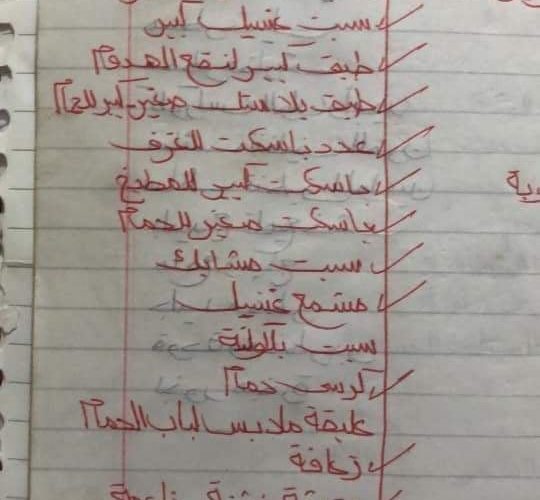 سبت غسيل كبير
طبق كبير لنقع الهدوم
طبق بلاستك صغير، كبير للحمام
عدد باسكت للغرف
باسكت كبير للمطبخ
باسكت صغير للحمام
سبت مشابك
مشمع غسيل
سبت بالونة
كرسى حمام
عليقة ملابس لباب الحمام
زحافة